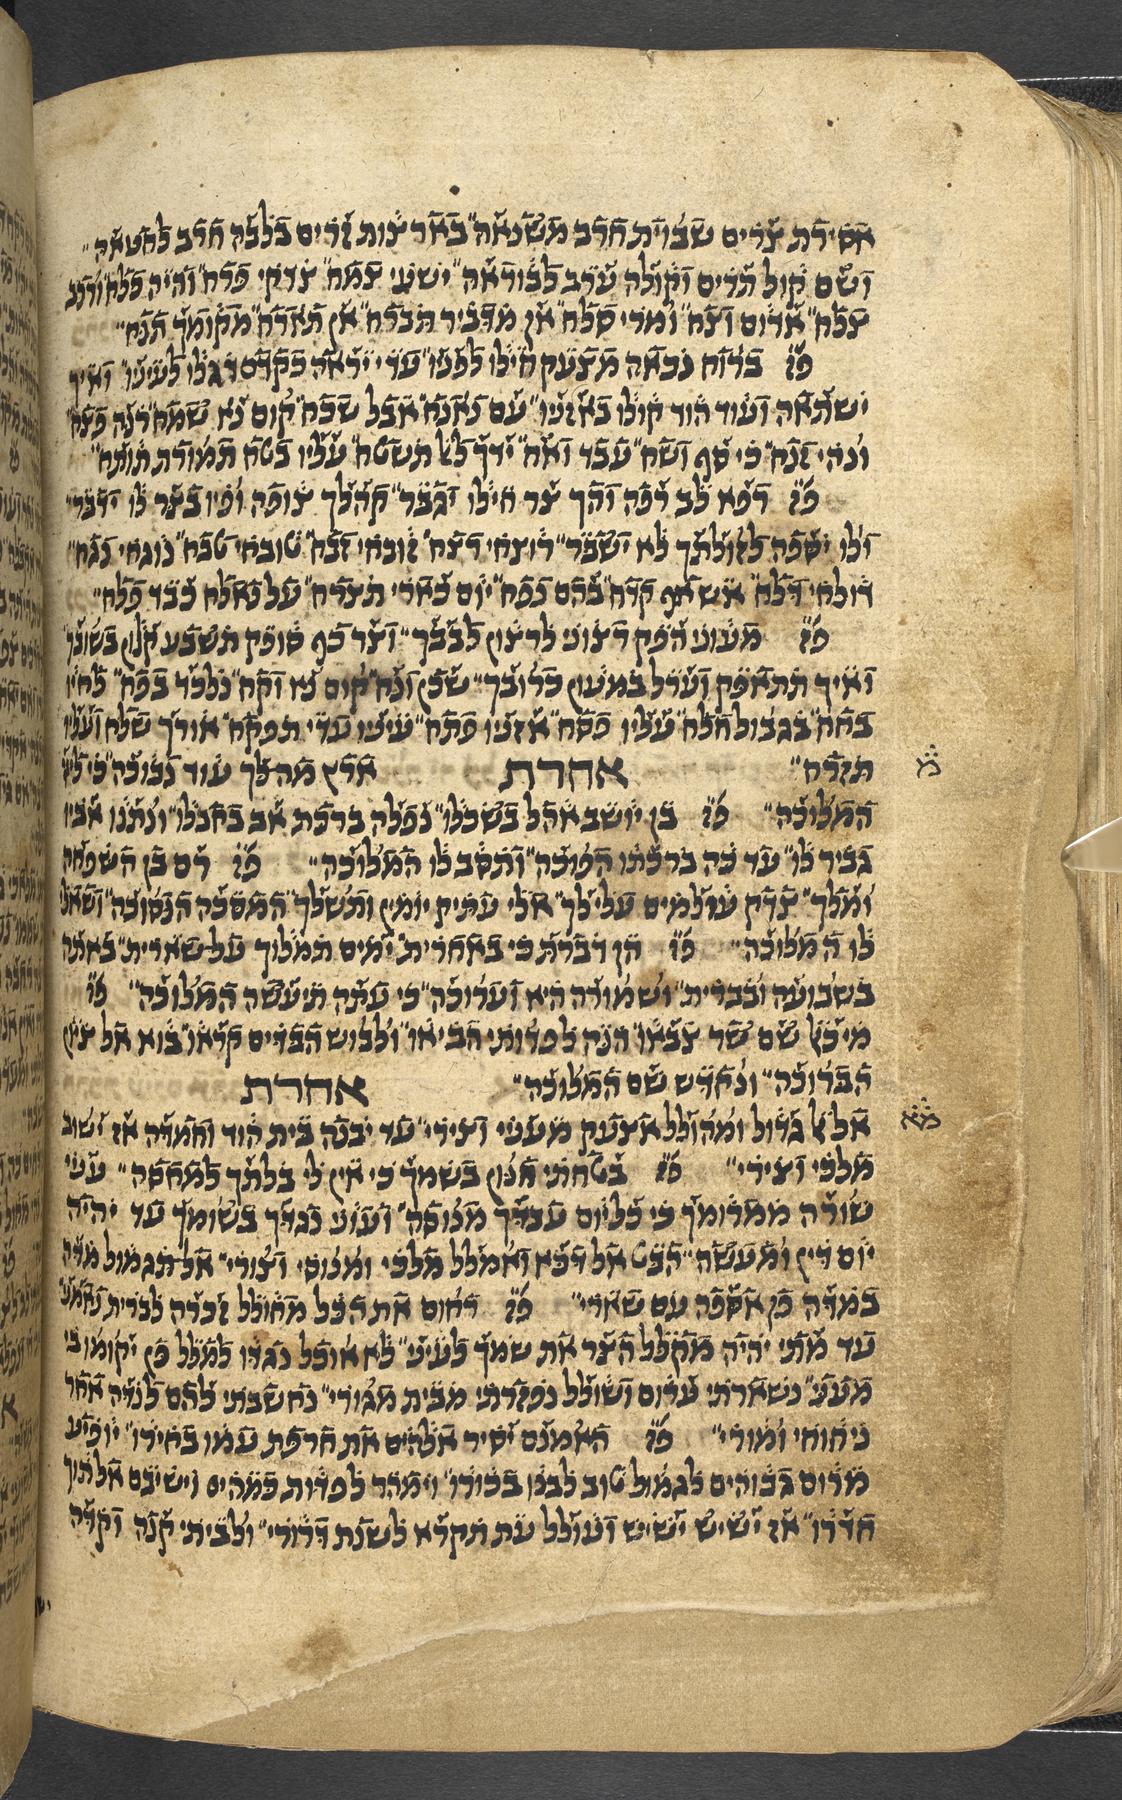 אסירת צרים שבוית חרב משנאה באר צוות זרים בלבה חרב לחטאה
ושם קול תרים וקולה ערב לבוראה ישעי צמח צדקי פרח והיה פלח ורכב
צלח אדום וצח ומרי סלח אן מדביר תברח אן תארח מקומך הנח
פז ברוח נכאה מצעק חילו לפניו עדי יראה בקדם דגלו לעיניו ואיך
ישתאה ועוד הוד קולו באזניו עם נאנח אבל שבח קום נא שמח רנה פצח
ונהי זנח כי סף ושח עבד ואח ידך לא תשטח עליו בטח תמורת תותח
פז רפא לב דפה והך צר חילו יגבר קהלך צופה ופיו בצר לו ידבר
ולו יספה לזולתך לא ישבר רוצחי רצח זובחי זבח טובחי טבח נוגחי נגח
דולחי דלח אש אף קדח בהם נפח יום כארי תצרח על נאלח כבד פלח
פז מעוני הפק רצוני לרצון לבבך וצר כף סופק תשבע קלון בשובך
ואיך תתאפק וערל במעון כרובך שכן ונח קום נא וקח נלכד בפח לחיו
בחח בגבול חלח עליו פסח אזניו פתח עיניו עדי תפקח אורך שלח ועליו
תזרח אחרת ארץ מה לך עוד נבוכה כי ליי
המלוכה פז בן יושב אהל בשכלו נפלה ברכת אב בחבלו ונתנו אביו
גביר לו עד כה ברכתו הפוכה ותסב לו המלוכה פז רם בן השפחה
ומלך צדק עולמים עליך לך אלי עתיק יומין ותשלך המסכה הנסוכה ושאלו
לו המלוכה פז הן דברת כי באחרית ימים תמלוך על שארית באתה
בשבועה ובברית ושמורה היא וערוכה כי עתה תיעשה המלוכה פז
מי כאל שם שר צבאו הנה לפדותי הביאו ולבוש הבדים קראו בוא אל ציון
הברוכה ונחדש שם המלוכה אחרת
אל אל גדול ומהולל אצעק מעניי וצירי עד יבנה בית הוד וחמדה אז ישוב
מלכי וצירי פז בטחתי חנון בשמך כי אין לי בלתך למחסה עניי
שורה ממרומך כי כל יום עבדך מנוסה ועוע נגדך בשומך עד יהיה
יום דין ומעשה הבט אל דכא ואמלל מלכי ומנוסי וצורי אל תגמול מדה
במדה פן אספה עם שארי פז רחום את הכל מחולל זכרה לברית נאמני
עד מתי יהיה מקלל הצר את שמך לעיני לא אוכל נגדו למלל פן יקומו בי
מעני נשארתי ערום ושולל נפזרתי מבית מגורי נחשבתי להם לנדה אחר
ניחוחי ומורי פז האמנם יסיר אלהים את חרפת עמו בחירו יופיע
מרום גבוהים לגמול טוב לבנו בכורו וימהר לפדות כמהים וישיבם אל תוך
חדרו אז ישיש ישיש ועולל עת תקרא לשנת דרורי ולביתי קנה וקדה
מ
מא